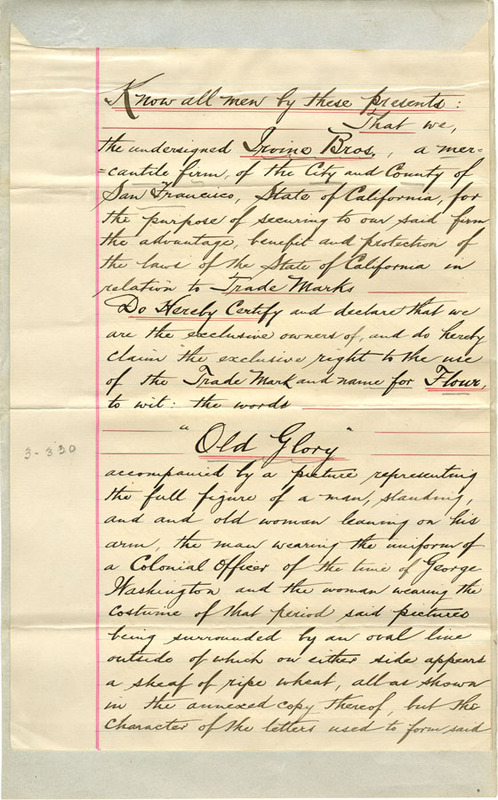 Know all men by these presents:
That we,
the undersigned Irvine Bros., a mer=
=cantile firm, of the City and County of
San Francisco, State of California, for
the purpose of securing to our said firm
the advantage, benefit and protection of
the laws of the State of California in
relation to Trade Marks
Do Hereby Certify and declare that we
are the exclusive owners of, and do hereby
claim the exclusive right to the use
of the Trade Mark and name for Flour,
to wit: the words
"Old Glory"
3-330
accompanied by a picture representing
the full figure of a man, standing,
and and old woman leaning on his
arm, the man wearing the uniform of
a Colonial Officer of the time of George
Washington and the woman wearing the
costume of that period said pictures
being surrounded by an oval line
outside of which on either side appears
a sheaf of ripe wheat, all as shown
in the annexed copy thereof, but the
character of the letters used to form said